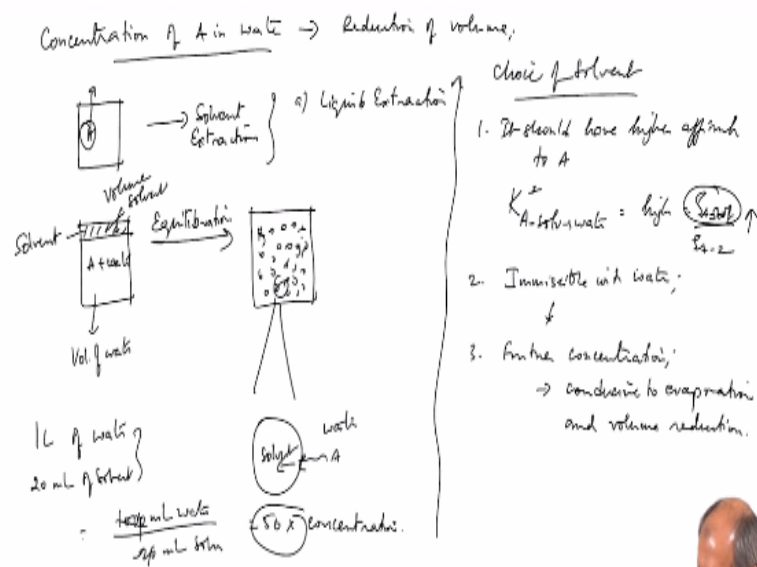 Concentration of A in water → Reduction of volume;
A
→ Solvent Extraction
a) Liquid Extraction
Volume solvent
Solvent
Equilibration
A + water
Vol. of water
1L of water
20 mL of Solvent
Solvent
water
A
= mL water
mL
= 50 x concentration.
Choice of Solvent
1. It should have higher
to A
K* A-solv-water = high
2. Immiscible with water;
↓
3. Further concentration;
⇒ conducive to evaporation
and volume reduction.